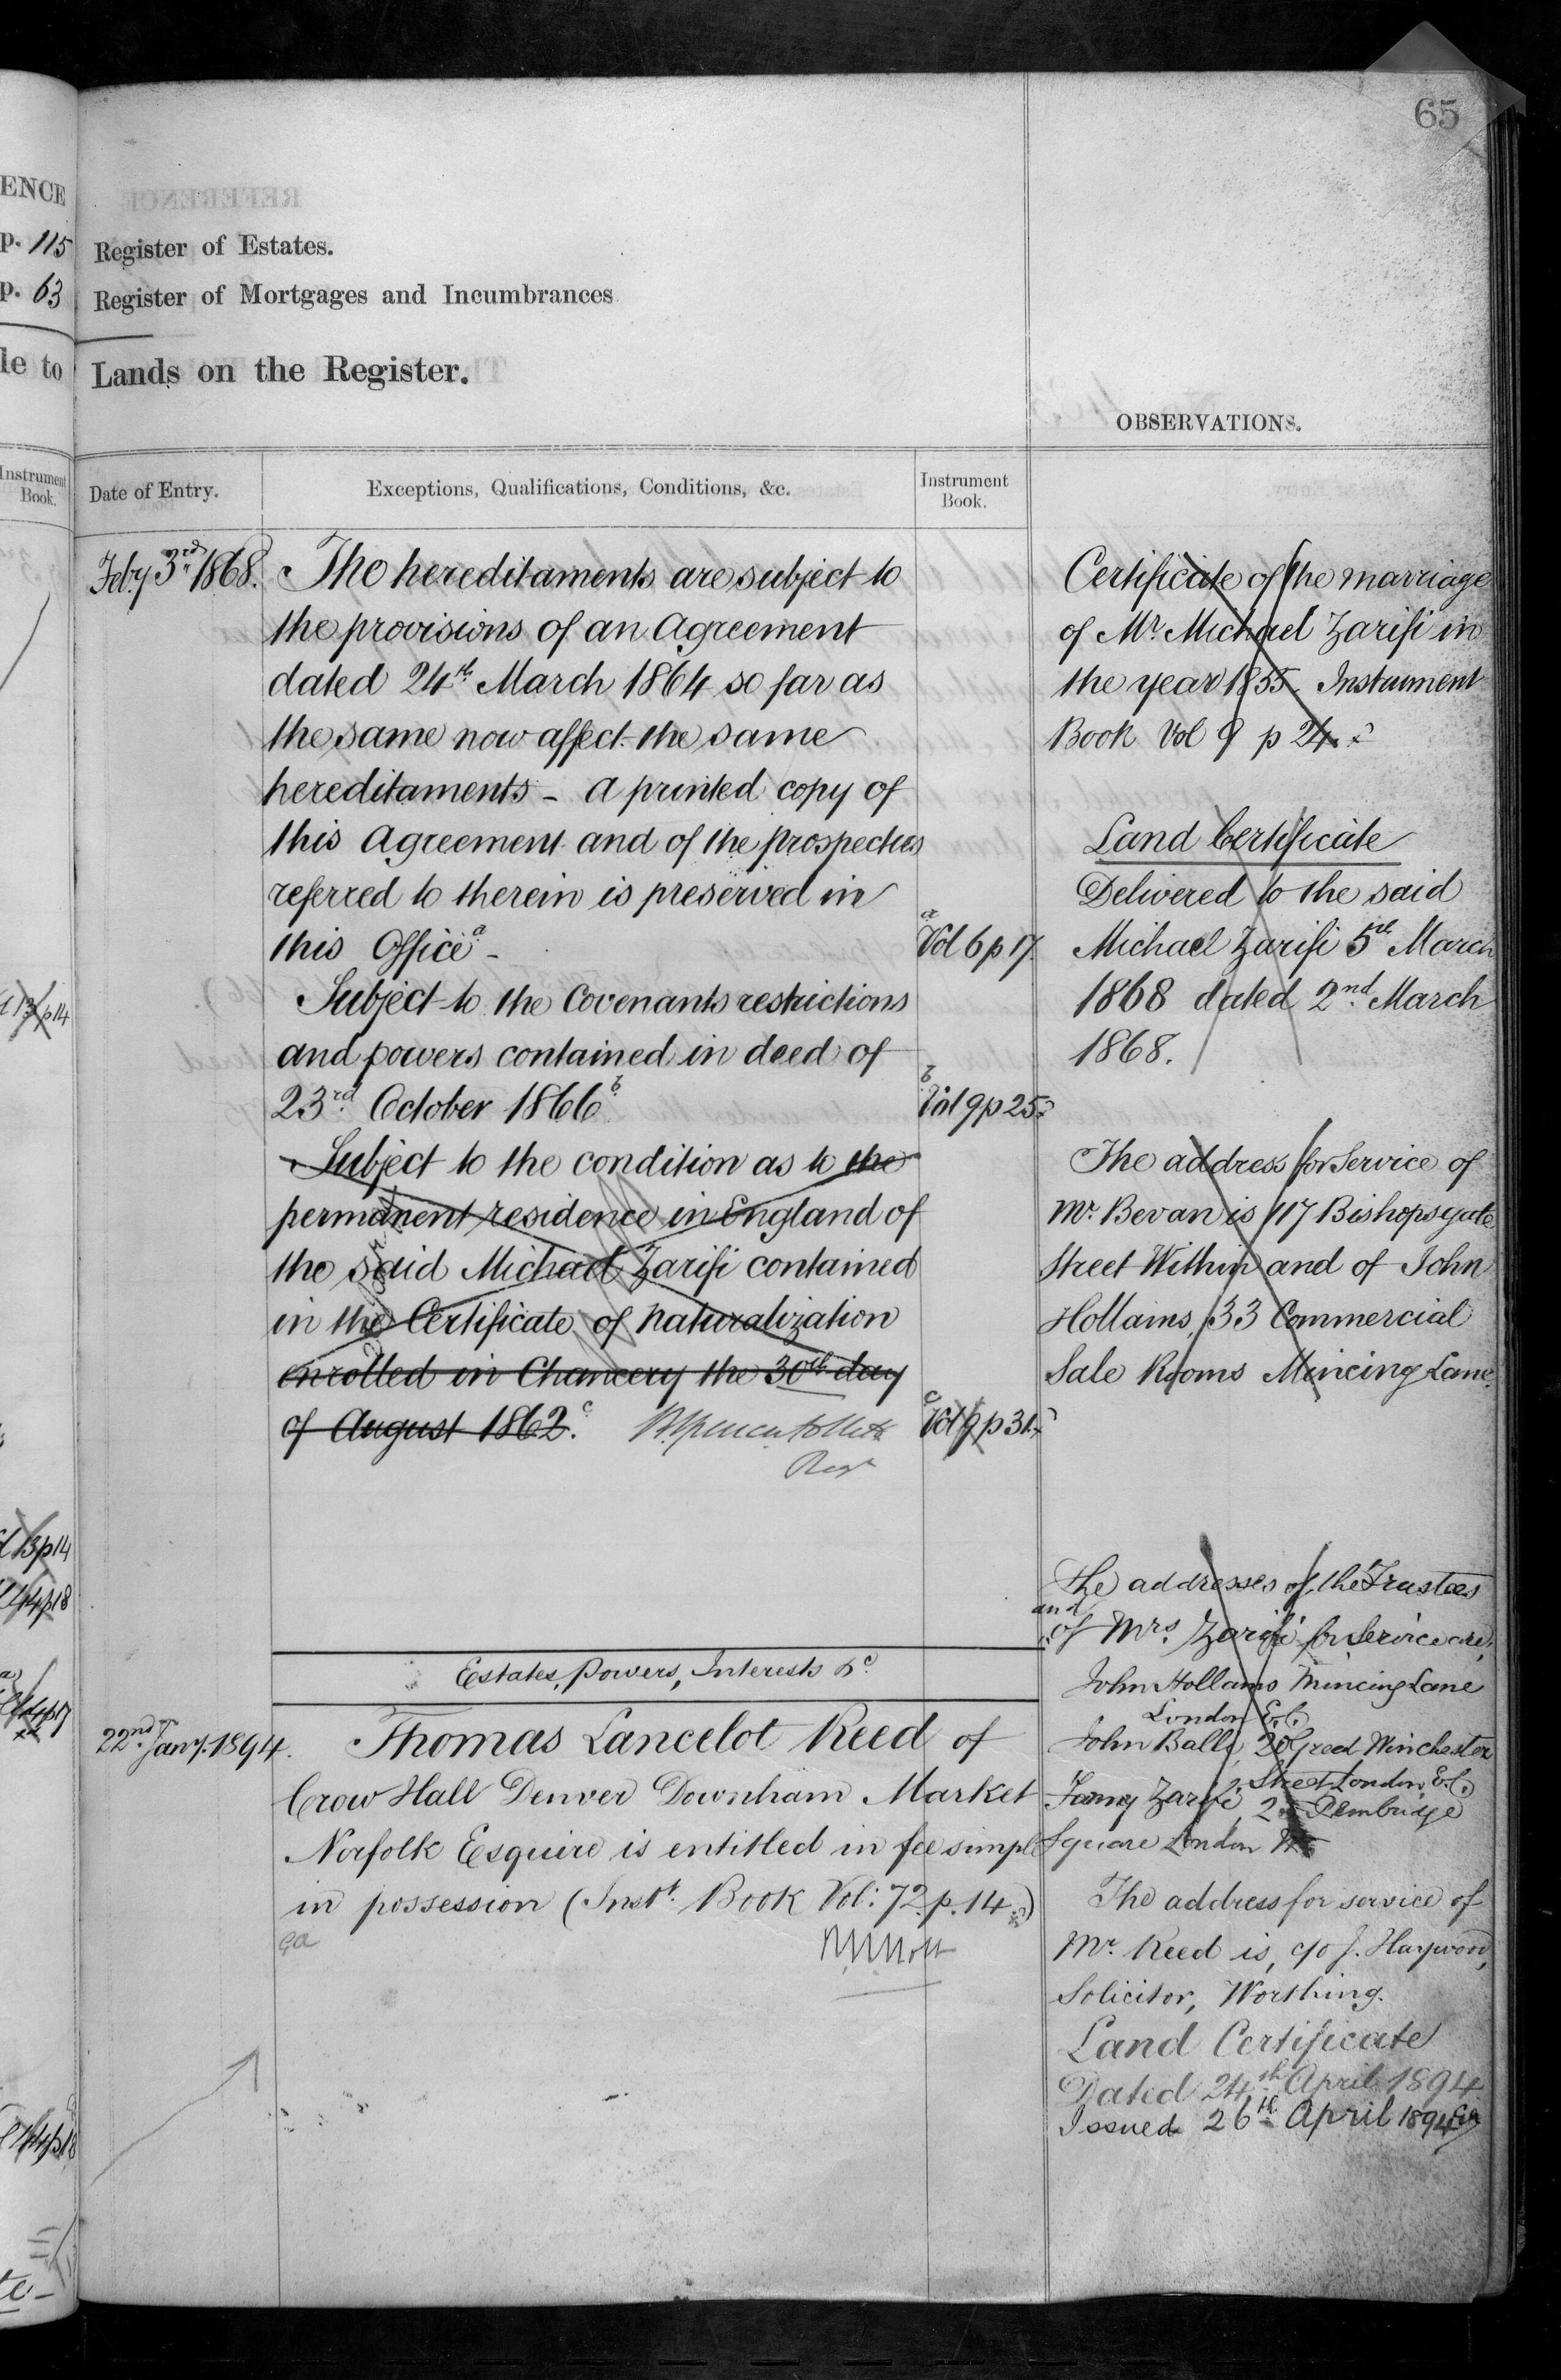 65
ENCE
p. 115
Register of Estates.
p. 63
Register of Mortgages and Incumbrances
le to
Lands on the Register.
OBSERVATIONS.
Instrument
Book.
Date of Entry.
Exceptions, Qualifications, Conditions, &c.
Instrument
Book.
Feby 3rd 1868.
The hereditaments are subject to
the provisions of an Agreement
dated 24th March 1864 so far as
the same now affect the same
hereditaments - a printed copy of
this Agreement and of the prospectus
referred to therein is preserved in
this Office a -
a
Vol 6 p 17.
Subject to the Covenants restrictions
and powers contained in deed of
23rd October 1866 b
b
Vol 9 p 25
Subject to the condition as to the
permanent residence in England of
the said Michael Zarifi contained
in the Certificate of Naturalization
enrolled in Chancery the 30th day
of August 1862. c
c
Vol 9 p 31
Regr
Estates, Powers, Interests &c
22nd Jany. 1894.
Thomas Lancelot Reed of
Crow Hall Denver Downham Market
Norfolk Esquire is entitled in fee simple
in possession (Inst. Book Vol: 72. p. 14)
Certificate of the marriage
of Mr. Michael Zarifi in
the year 1855. Instrument
Book Vol 9 p 24.
Land Certificate
Delivered to the said
Michael Zarifi 5th March
1868 dated 2nd March
1868.
The address for Service of
Mr. Bevan is 117 Bishopsgate
Street Within and of John
Hollams, 33 Commercial
Sale Rooms Mincing Lane.
The addresses of the Trustees
and
of Mrs. Zarifi for Service are,
John Hollams Mincing Lane
London E.C.
John Ball, 20 Great Winchester
Street London E.C.
Fanny Zarifi, 2 Pembridge
Square London W.
The address for service of
Mr. Reed is, c/o J. Haywood,
Solicitor, Worthing.
Land Certificate
Dated 24th April 1894
Issued 26th April 1894